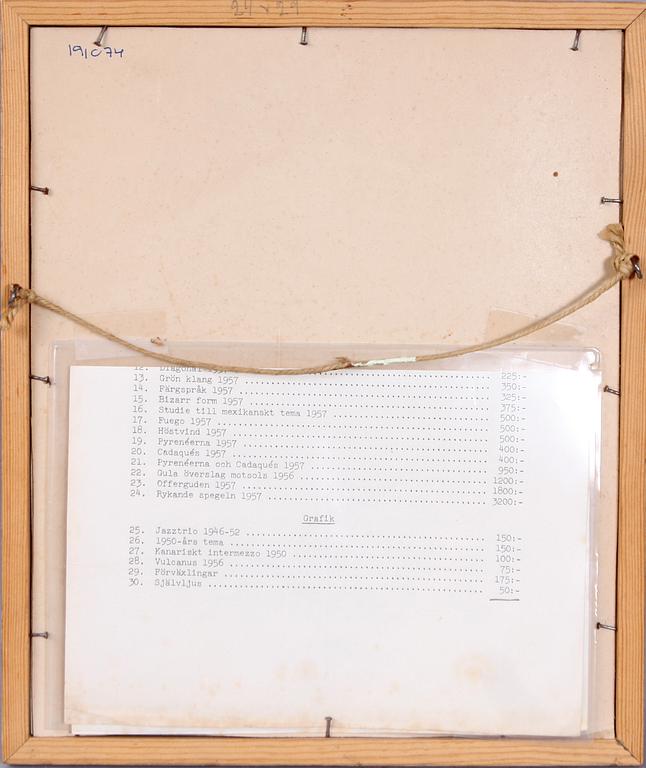 24 x 29
191074
12. Diagonal ..... 225:-
13. Grön klang 1957 ..... 350:-
14. Färgspråk 1957 ..... 325:-
15. Bizarr form 1957 ..... 375:-
16. Studie till mexikanskt tema 1957 ..... 500:-
17. Fuego 1957 ..... 500:-
18. Höstvind 1957 ..... 500:-
19. Pyrenéerna 1957 ..... 400:-
20. Cadaqués 1957 ..... 400:-
21. Pyrenéerna och Cadaqués 1957 ..... 950:-
22. Gula överslag motsols 1956 ..... 1200:-
23. Offerguden 1957 ..... 1800:-
24. Rykande spegeln 1957 ..... 3200:-
Grafik
25. Jazztrio 1946-52 ..... 150:-
26. 1950-års tema ..... 150:-
27. Kanariskt intermezzo 1950 ..... 100:-
28. Vulcanus 1956 ..... 75:-
29. Förväxlingar ..... 175:-
30. Självljus ..... 50:-